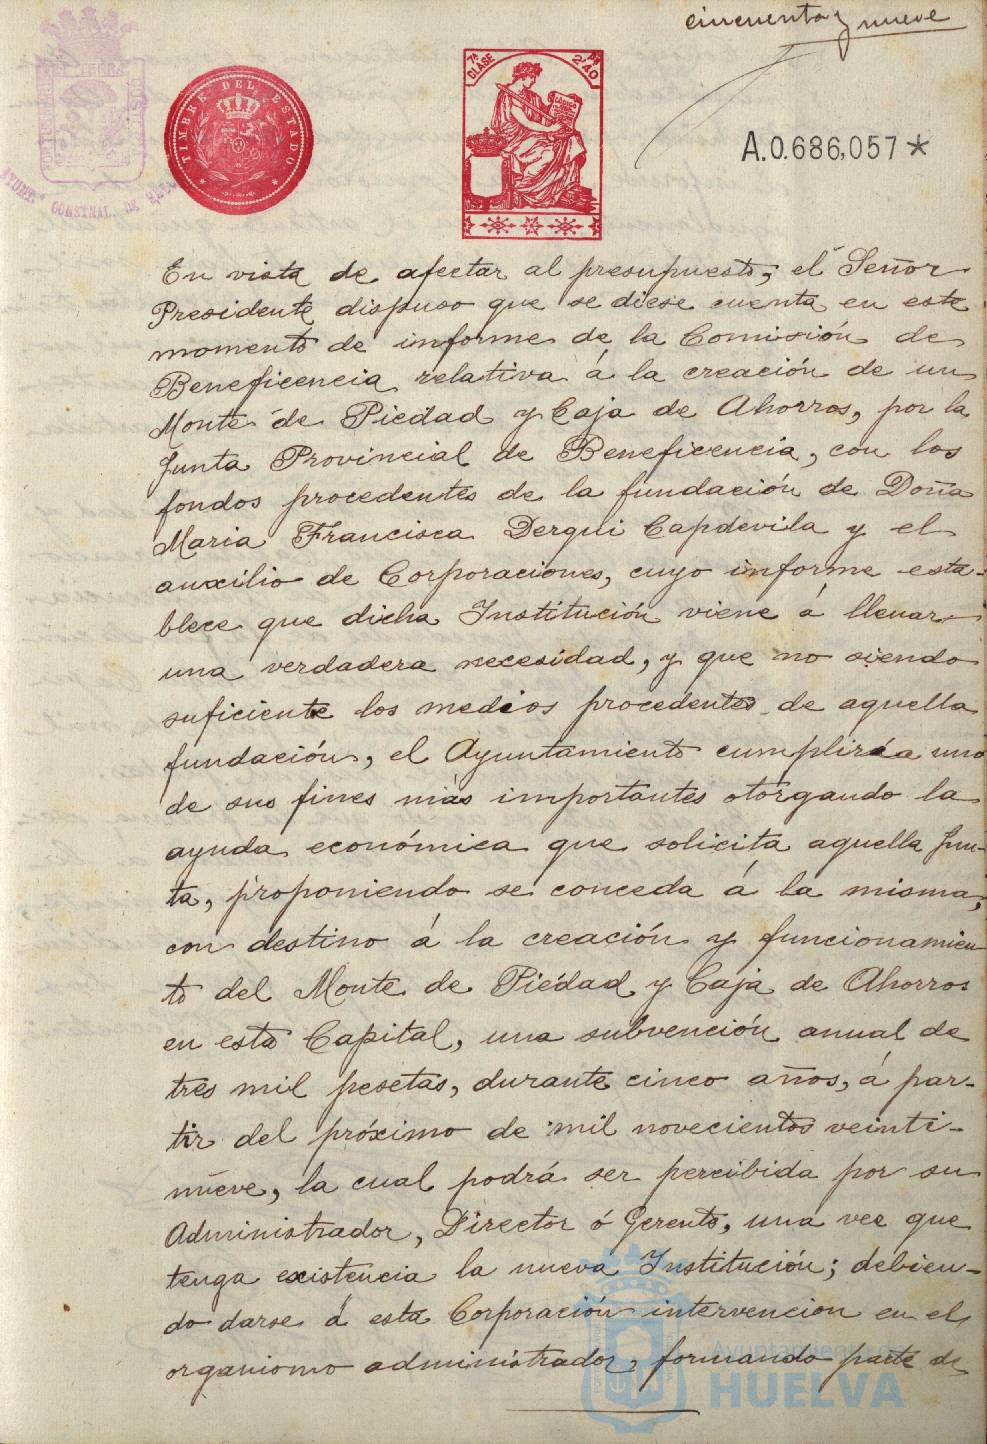 cincuenta y nueve
TIMBRE DEL ESTADO
7ª CLASE
2'40
A.0.686,057*
CONSTNAL. DE
En vista de afectar al presupuesto, el Señor
Presidente dispuso que se diese cuenta en este
momento de informe de la Comisión de
Beneficencia relativa á la creación de un
Monte de Piedad y Caja de Ahorros, por la
Junta Provincial de Beneficencia, con los
fondos procedentes de la fundación de Doña
Maria Francisca Derqui Capdevila y el
auxilio de Corporaciones, cuyo informe esta-
blece que dicha Institución viene á llenar
una verdadera necesidad, y que no siendo
suficiente los medios procedentes de aquella
fundación, el Ayuntamiento cumpliría uno
de sus fines más importantes otorgando la
ayuda económica que solicita aquella Jun-
ta, proponiendo se conceda á la misma,
con destino á la creación y funcionamien
to del Monte de Piedad y Caja de Ahorros
en esta Capital, una subvención anual de
tres mil pesetas, durante cinco años, á par-
tir del próximo de mil novecientos veinti-
nueve, la cual podrá ser percibida por su
Administrador, Director ó Gerente, una vez que
tenga existencia la nueva Institución; debien-
do darse á esta Corporación intervencion en el
organismo administrador, formando parte de
Ayuntamiento de
HUELVA